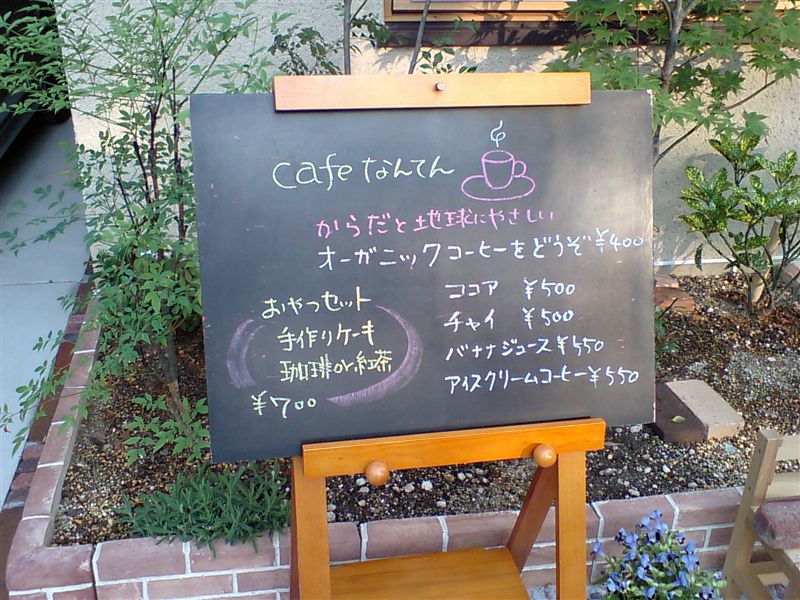 cafe なんてん
からだと地球にやさしい
オーガニックコーヒーをどうぞ ¥400
おやつセット
手作りケーキ
珈琲or紅茶
¥700
ココア ¥500
チャイ ¥500
バナナジュース ¥550
アイスクリームコーヒー ¥550